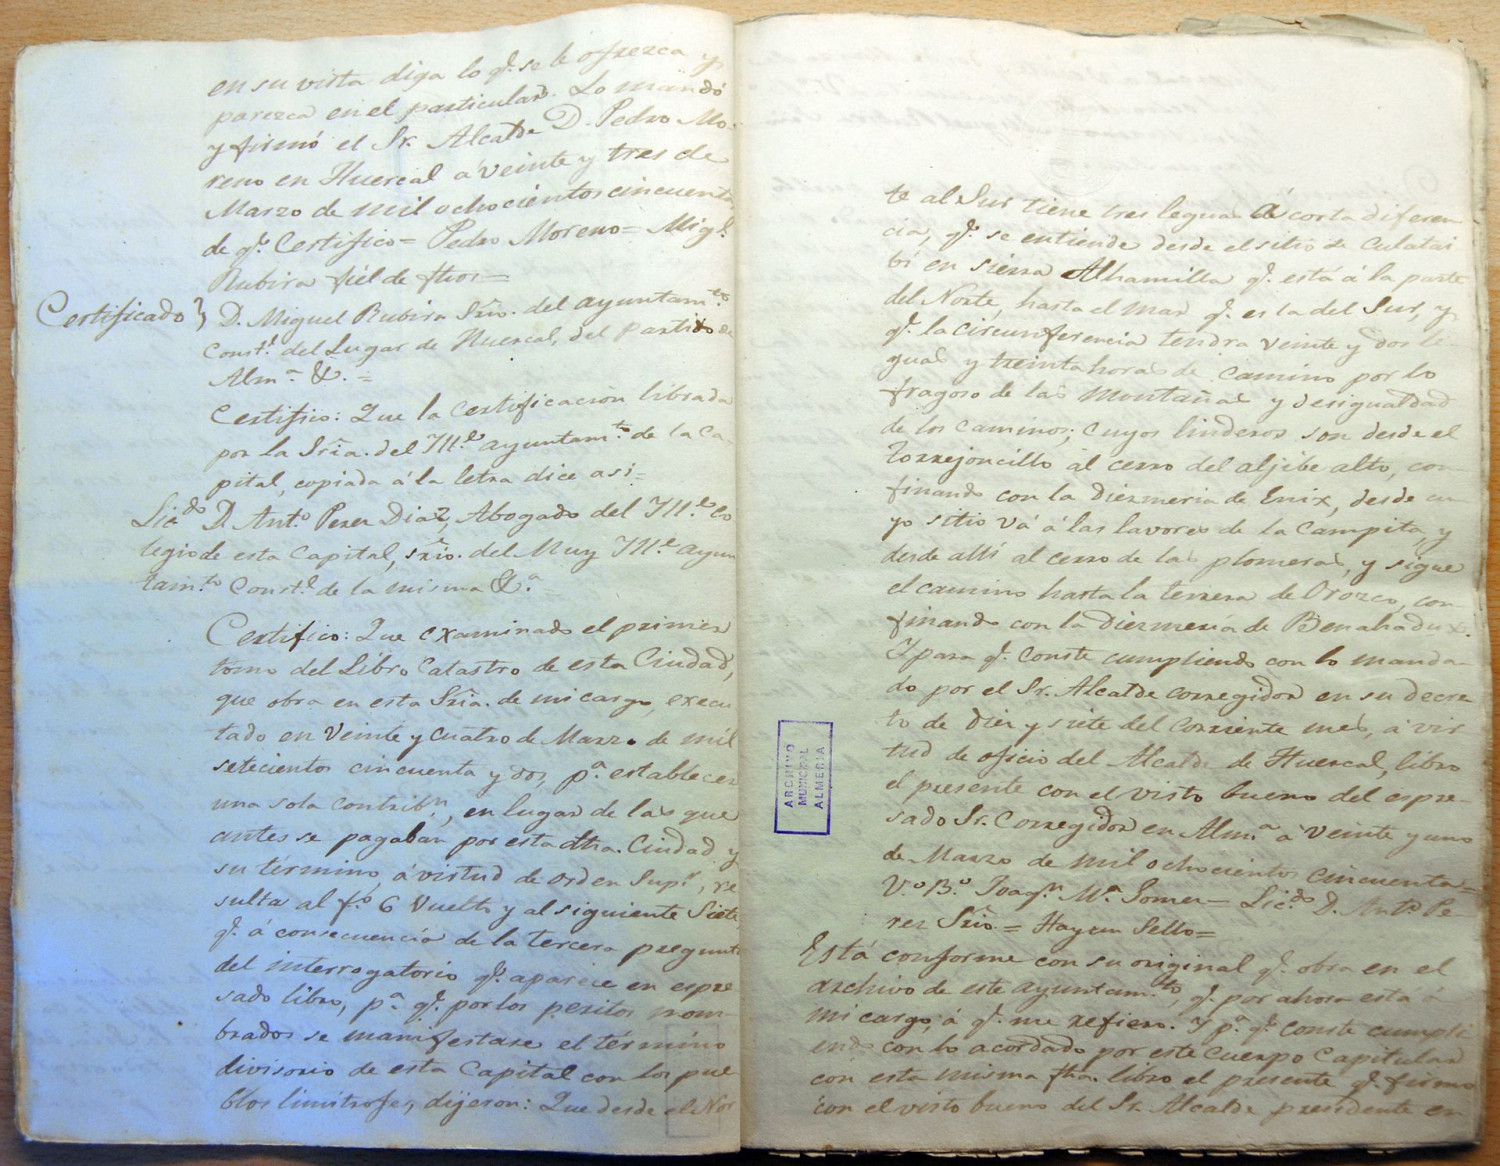 en su vista diga lo q.e se le ofrezca y
parezca en el particular. Lo mandó
y firmó el Sr. Alcalde D. Pedro Mo-
reno en Huercal á veinte y tres de
Marzo de mil ochocientos cincuenta
de q.e Certifico = Pedro Moreno = Mig.l
Rubira fiel de fhos =
Certificado }
D. Miguel Rubira Srio. del ayuntam.to
Const.l del Lugar de Huercal, del partido de
Alm.a &. =
Certifico: Que la certificacion librada
por la Sria. del Ill.e ayuntam.to de la Ca-
pital, copiada á la letra dice asi =
Lic.do D. Ant.o Perez Diaz, Abogado del Ill.e Co
legio de esta Capital, srio. del Muy Ill.e ayun
tam.to Const.l de la misma &.a
Certifico: Que examinado el primer
tomo del Libro Catastro de esta Ciudad,
que obra en esta Sria. de mi cargo, execu
tado en veinte y cuatro de Marzo de mil
setecientos cincuenta y dos, p.a establecer
una sola contrib.n, en lugar de las que
antes se pagaban por esta dha. Ciudad y
su término, á virtud de orden Sup.r, re
sulta al f.o 6 vuelto y al siguiente Siete
q.e á consecuencia de la tercera pregunta
del interrogatorio q.e aparece en espre
sado libro, p.a q.e por los peritos nom-
brados se manifestase el término
divisorio de esta Capital con los pue
blos limitrofes, dijeron: Que desde el Nor
te al Sur tiene tres leguas á corta diferen
cia, q.e se entiende desde el sitio de Culatai
bi en sierra Alhamilla q.e está á la parte
del Norte, hasta el mar q.e es la del Sur, y
q.e la circunferencia tendra veinte y dos le-
guas y treinta horas de camino por lo
fragoso de las montañas y desigualdad
de los caminos; cuyos linderos son desde el
torrejoncillo al cerro del aljibe alto, con-
finando con la Diezmeria de Enix, desde cu
yo sitio vá á las labores de la Campita, y
desde allí al cerro de las plomeras, y sigue
el camino hasta la terrera de Orozco, con-
finando con la Diezmeria de Benahadux.
Y para q.e conste cumpliendo con lo manda-
do por el Sr. Alcalde corregidor en su decre
to de diez y siete del corriente mes, á vir
tud de oficio del Alcalde de Huercal, libro
el presente con el visto bueno del espre-
sado Sr. Corregidor en Alm.a á veinte y uno
de Marzo de mil ochocientos cincuenta =
V.o B.o Joaq.n M.a Gomez = Lic.do D. Ant.o Pe-
rez Srio. = Hay un Sello =
Está conforme con su original q.e obra en el
archivo de este ayuntam.to, q.e por ahora está á
mi cargo, á q.e me refiero. Y p.a q.e conste cumpli
endo con lo acordado por este Cuerpo Capitular
con esta misma fha. libro el presente q.e firmo
con el visto bueno del Sr. Alcalde presidente en
ARCHIVO
MUNICIPAL
ALMERIA